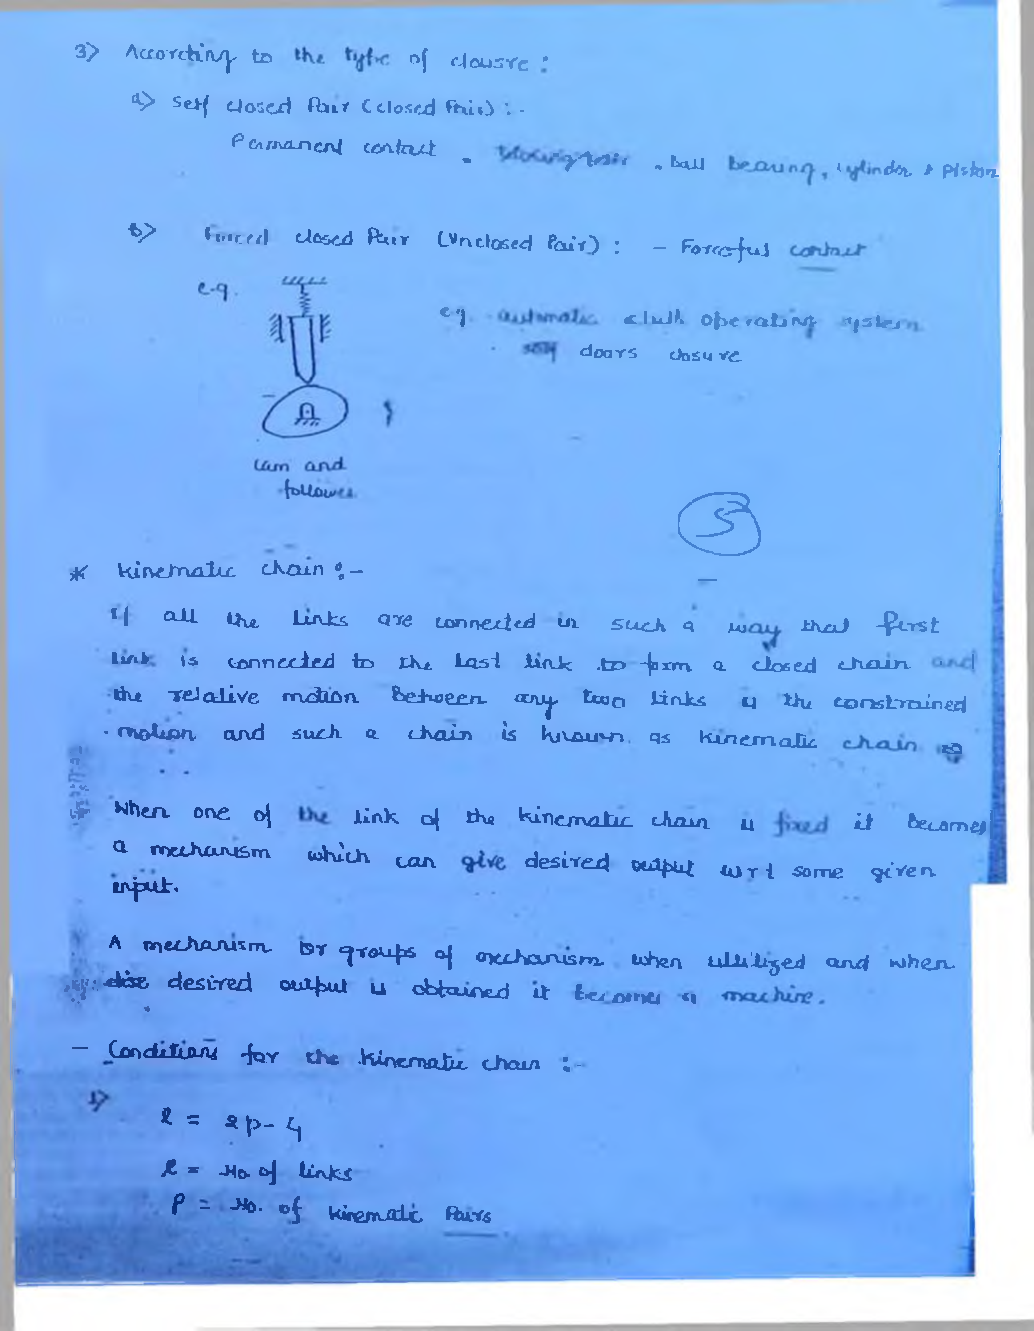 3) According to the type of clousre :
a) Self closed Pair (closed Pair) : -
Permanent contact . ball bearing, cylinder & piston
b) Forced closed Pair (Unclosed Pair) : - Forceful contact
e.g.
eg. automatic cluth operating system
doors closure
Cam and
follower
5
* Kinematic chain :-
If all the links are connected in such a way that first
link is connected to the last link to form a closed chain and
the relative motion between any two links is the constrained
motion and such a chain is known as kinematic chain
When one of the link of the kinematic chain is fixed it becomes
a mechanism which can give desired output w r t some given
input.
A mechanism or groups of mechanism when utilized and when
desired output is obtained it becomes a machine.
- Conditions for the kinematic chain :-
1)
l = 2p - 4
l = No. of links
P = No. of kinematic Pairs